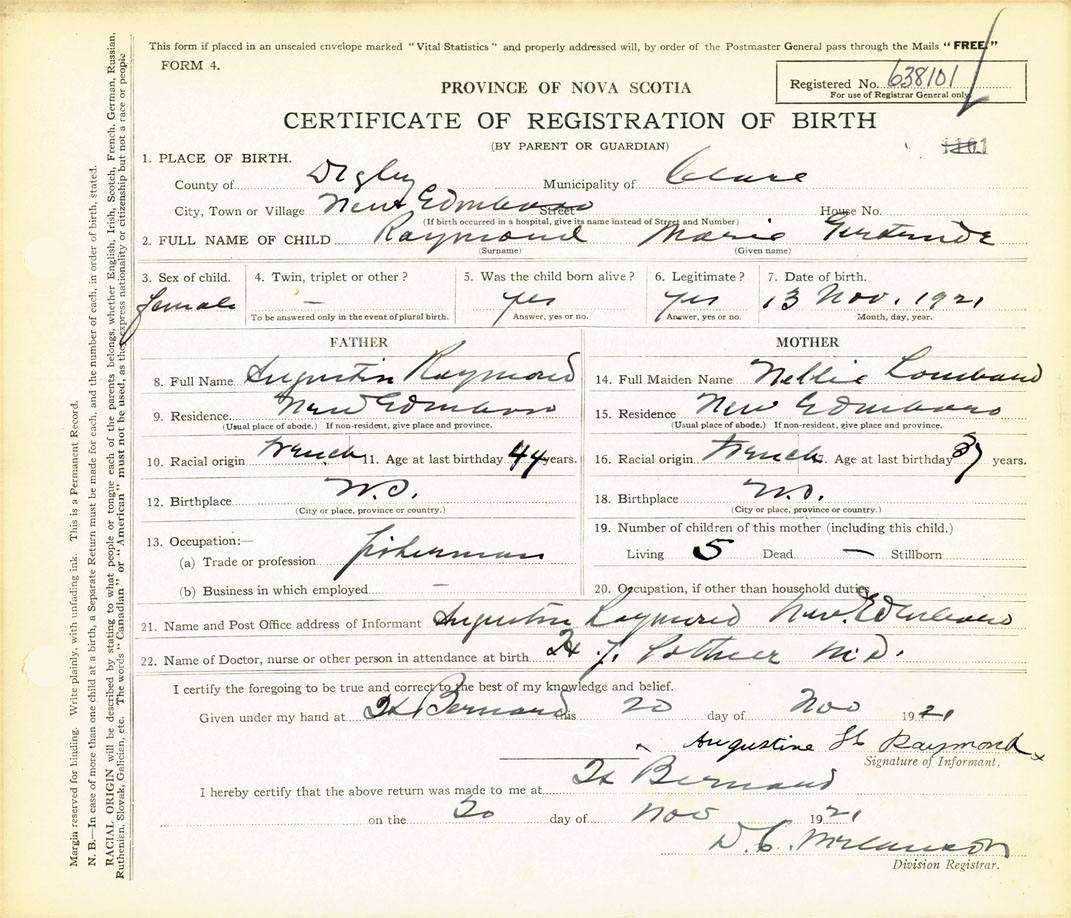 This form if placed in an unsealed envelope marked "Vital Statistics" and properly addressed will, by order of the Postmaster General pass through the Mails "FREE."
FORM 4.
Registered No. 638101
For use of Registrar General only.
PROVINCE OF NOVA SCOTIA
CERTIFICATE OF REGISTRATION OF BIRTH
(BY PARENT OR GUARDIAN)
1. PLACE OF BIRTH.
County of Digby Municipality of Clare
City, Town or Village New Edinboro Street House No.
(If birth occurred in a hospital, give its name instead of Street and Number)
2. FULL NAME OF CHILD Raymond Marie Gertrude
(Surname) (Given name)
3. Sex of child. 4. Twin, triplet or other? 5. Was the child born alive? 6. Legitimate? 7. Date of birth.
female — yes yes 13 Nov. 1921
To be answered only in the event of plural birth. Answer, yes or no. Answer, yes or no. Month, day, year.
FATHER
8. Full Name Augustin Raymond
9. Residence. New Edinboro
(Usual place of abode.) If non-resident, give place and province.
10. Racial origin French 11. Age at last birthday 44 years.
12. Birthplace N.S.
(City or place, province or country.)
13. Occupation:—
(a) Trade or profession fisherman
(b) Business in which employed —
MOTHER
14. Full Maiden Name Nellie
15. Residence New Edinboro
(Usual place of abode.) If non-resident, give place and province.
16. Racial origin French 17. Age at last birthday 37 years.
18. Birthplace N.S.
(City or place, province or country.)
19. Number of children of this mother (including this child.)
Living 5 Dead — Stillborn
20. Occupation, if other than household duties.
21. Name and Post Office address of Informant Augustin Raymond New Edinboro
22. Name of Doctor, nurse or other person in attendance at birth Pothier M.D.
I certify the foregoing to be true and correct to the best of my knowledge and belief.
Given under my hand at St Bernard this 20 day of Nov 1921
Augustine St Raymond
Signature of Informant.
I hereby certify that the above return was made to me at St Bernard
on the 20 day of Nov 1921
Division Registrar.
Margin reserved for binding. Write plainly, with unfading ink. This is a Permanent Record.
N. B.—In case of more than one child at a birth, a Separate Return must be made for each, and the number of each, in order of birth, stated.
RACIAL ORIGIN will be described by stating to what people or tongue each of the parents belongs, whether English, Irish, Scotch, French, German, Russian,
Ruthenian, Slovak, Galician, etc. The words "Canadian" or "American" must not be used, as they express nationality or citizenship but not a race or people